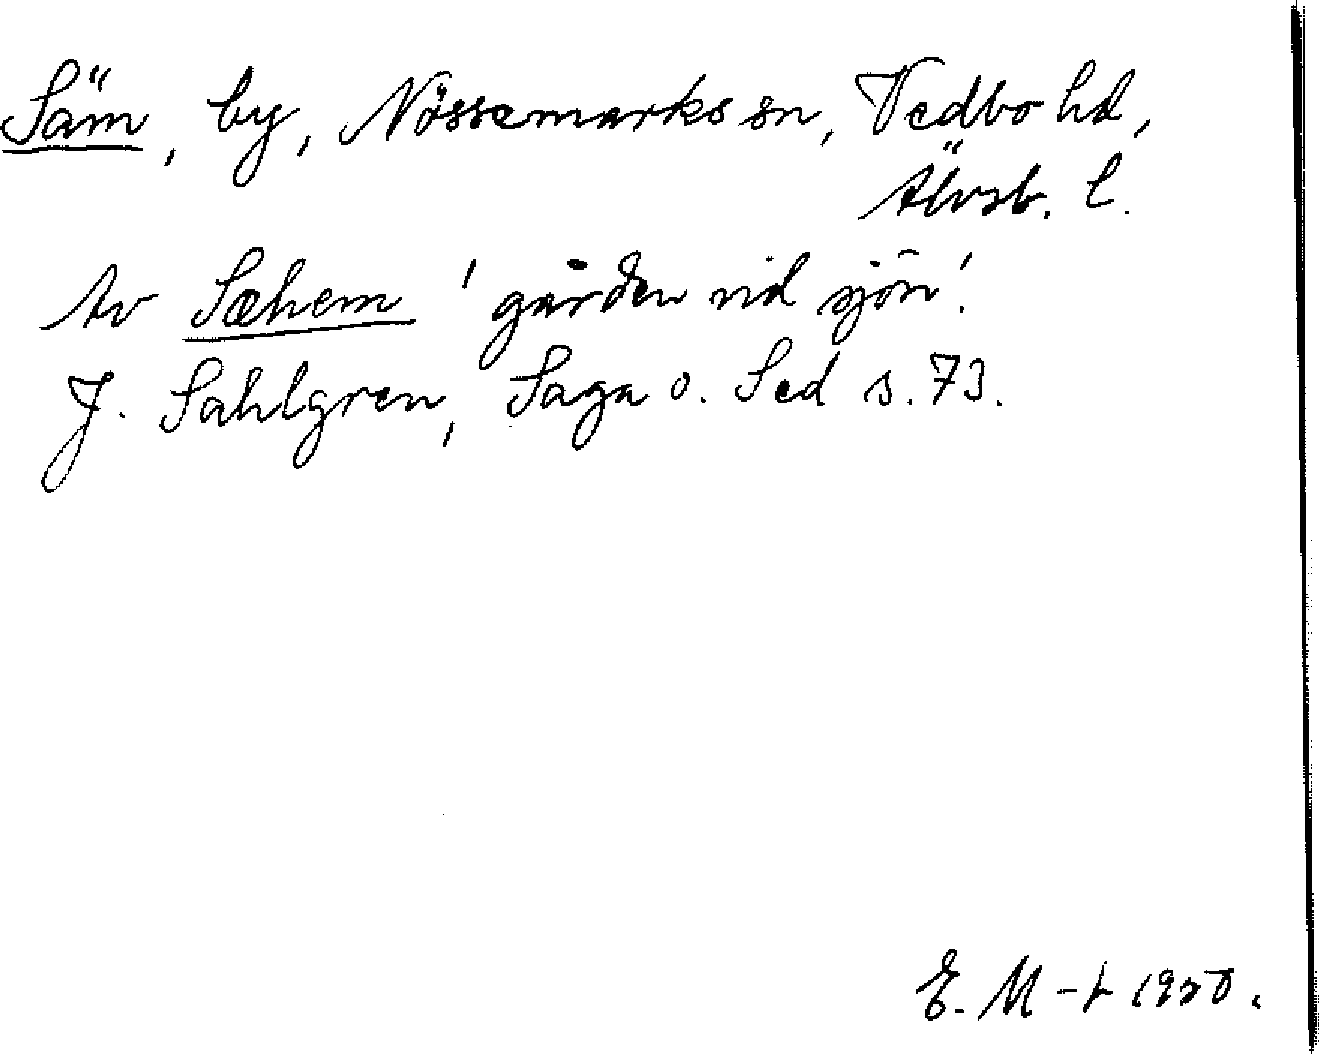 Säm, by, Nössemarks sn, Vedbo hd,
Älvsb. l.
Av Sæhem 'gården vid sjön'.
J. Sahlgren, Saga o. Sed s. 73.
E. M-t